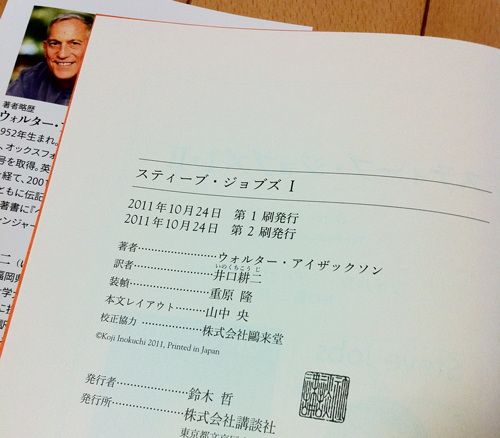 著者略歴
ウォルター・
952年生まれ。
、オックスフォ
号を取得。英
経て、2001
ともに伝記
著書に『
ンジャー
二（い
福岡県
学大
スティーブ・ジョブズ I
2011年10月24日 第1刷発行
2011年10月24日 第2刷発行
著者……………………ウォルター・アイザックソン
いのくちこうじ
訳者……………井口耕二
装幀……………重原 隆
本文レイアウト………山中 央
校正協力……………株式会社鷗来堂
©Koji Inokuchi 2011, Printed in Japan
発行者……………鈴木 哲
発行所……………株式会社講談社
東京都文京区